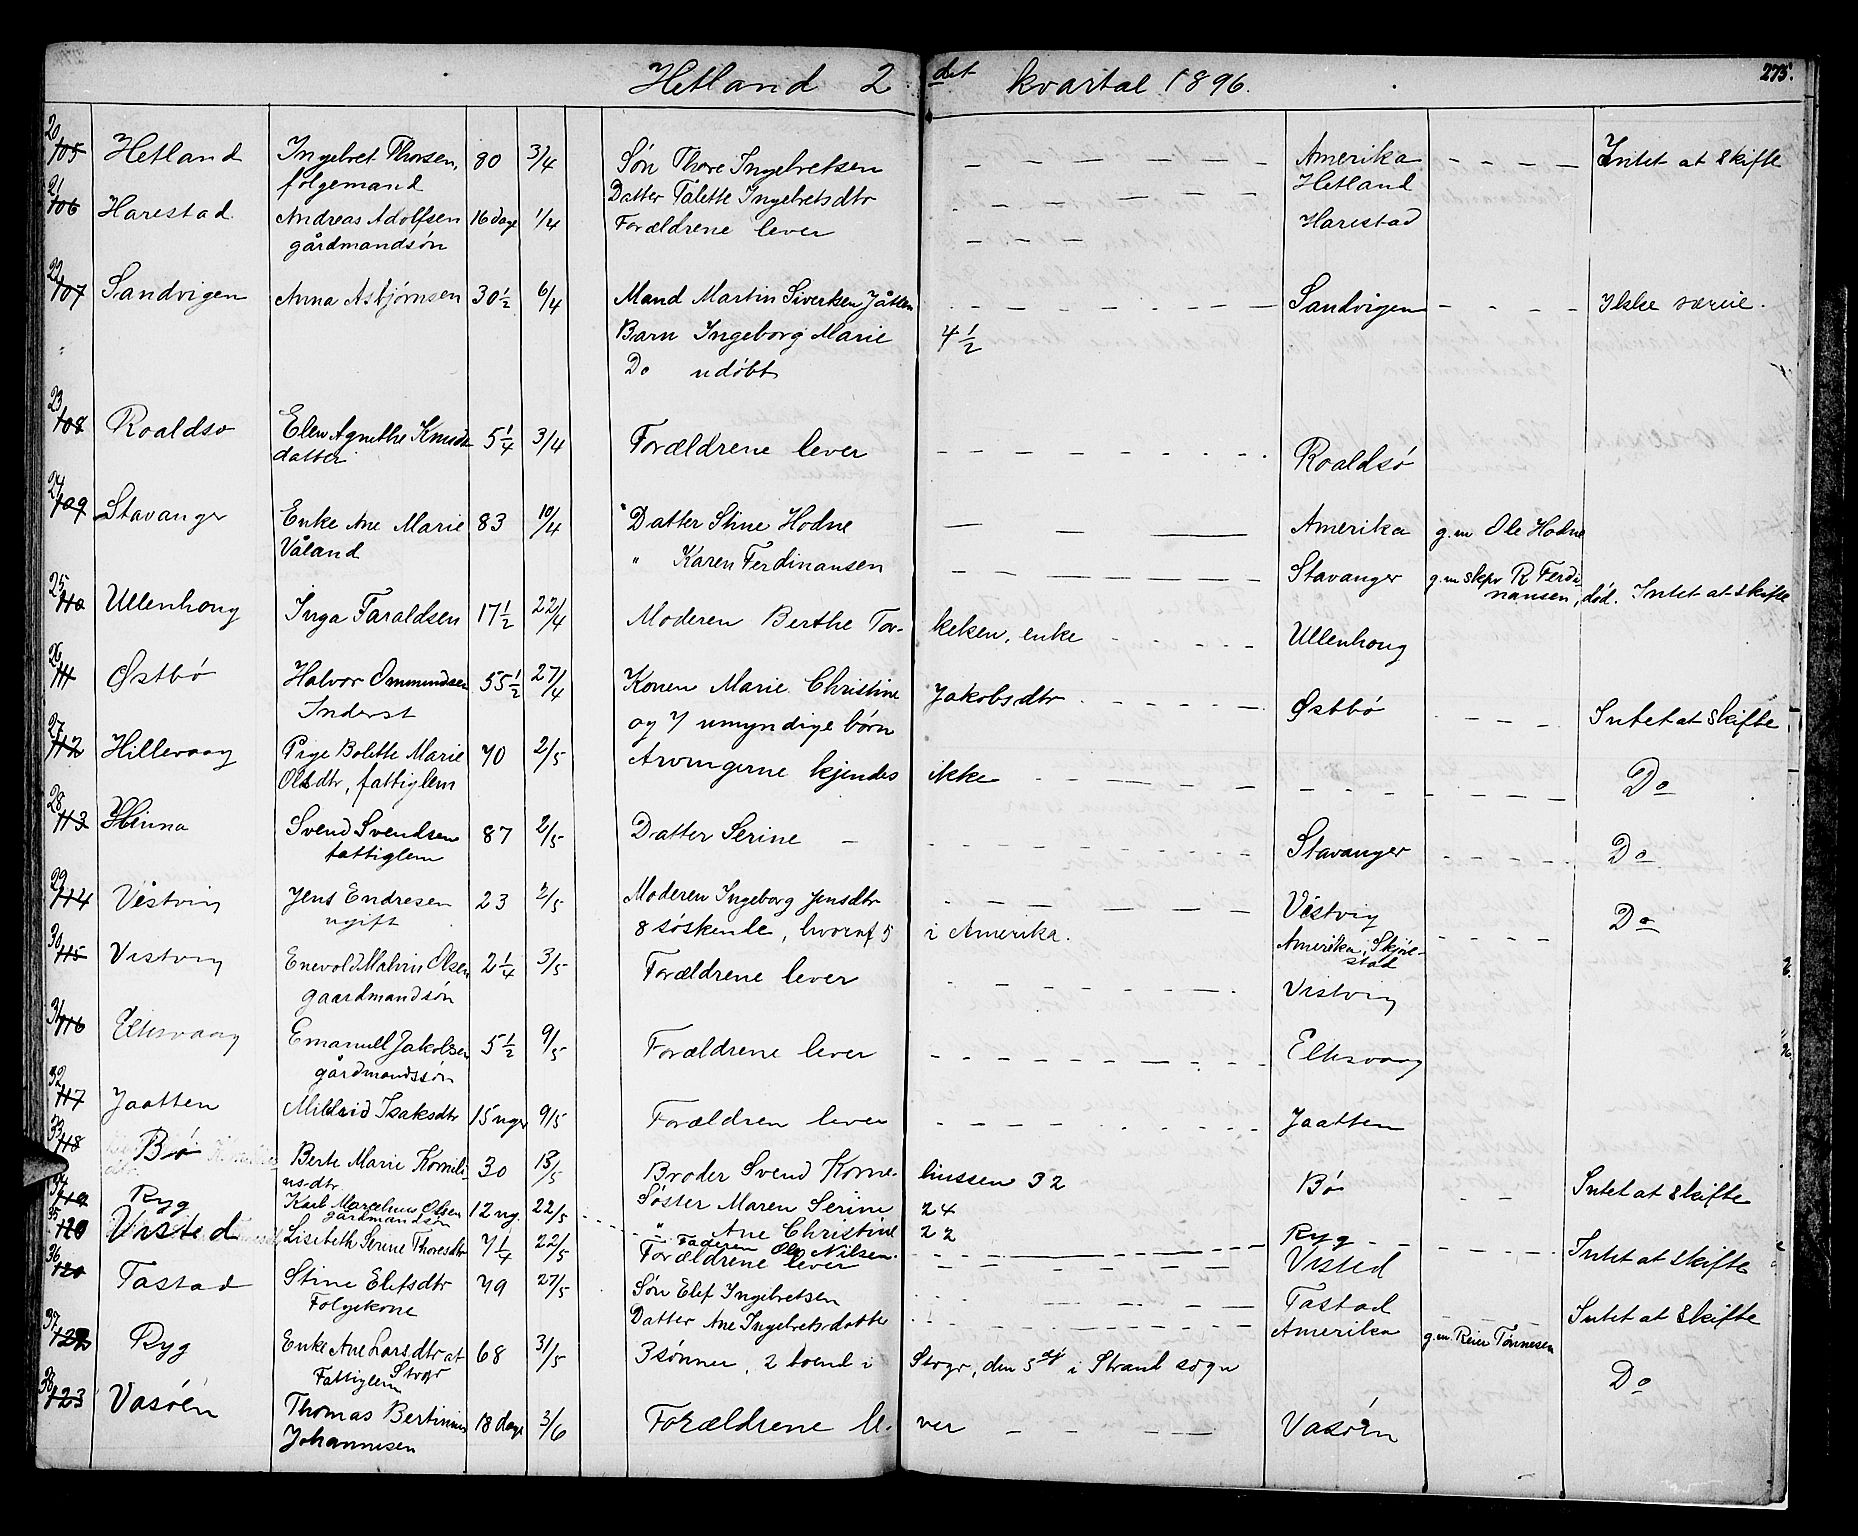 Hetland 2det kvartal 1896.
275.
20 105 Hetland Ingebret Thorsen, 80 3/4 Søn Thore Ingebretsen Amerika Intet at skifte
følgemand Datter Talette Ingebretsdtr Hetland
21 106 Harestad Andreas Adolfsen 16 dage 1/4 Forældrene lever Harestad
gårdmandsøn
22 107 Sandvigen Anna Asbjørnsen 30 1/2 6/4 Mand Martin Siversen Jåtten Sandvigen Ikke særeie.
Barn Ingeborg Marie 4 1/2
Do udøbt
23 108 Roaldsø Elen Agnethe Knuds 5 1/4 3/4 Forældrene lever Roaldsø
datter
24 109 Stavanger Enke Ane Marie 83 10/4 Datter Stine Hodne Amerika g.m Ole Hodne
Våland " Karen Ferdinansen Stavanger g.m skpr R Ferdi-
nansen, død. Intet at skifte
25 110 Ullenhoug Inga Taraldsen 17 1/2 22/4 Moderen Berthe Tor- kelsen, enke Ullenhoug
26 111 Østbø Halvor Ommundsen 55 1/2 27/4 Konen Marie Christine Jakobsdtr Østbø Intet at skifte
Inderst og 7 umyndige børn
27 112 Hillevaag Pige Bolette Marie 70 2/5 Arvingerne kjendes ikke Do
Olsdtr, fattiglem
28 113 Hinna Svend Svendsen 87 2/5 Datter Serine Stavanger Do
fattiglem
29 114 Vistvig Jens Endresen 23 2/5 Moderen Ingeborg Jensdtr Vistvig Do
ugift 8 søskende, hvoraf 5 i Amerika. Amerika, Skjøl-
stad
30 115 Vistvig Enevold Malvin Olsen 2 1/4 3/5 Forældrene lever Vistvig
gaardmandsøn
31 116 Elksvaag Emanuel Jakobsen 5 1/2 9/5 Forældrene lever Elksvaag
gårdmandssøn
32 117 Jaatten Milbrid Isaksdtr 15 uger 9/5 Forældren lever Jaatten
33 118 Bø Berte Marie Korneli- 30 18/5 Broder Svend Korne- liussen 32 Bø Intet at skifte
usdtr
34 119 Ryg Karl Marcelius Olsen 12 ug. 22/5 Søster Maren Serine 24
gårdmandsøn " Ane Christine 22
Faderen Ole Nilsen. Ryg Intet at skifte
35 120 Visted Lisebeth Serine Thoresdtr 7 1/4 22/5 Forældrene lever Visted
36 121 Tastad Stine Elefsdtr 79 27/5 Søn Elef Ingebretsen Tastad Intet at skifte
Følgekone Datter Ane Ingebretsdatter Amerika g.m. Reier Tønnesen
37 122 Ryg Enke Ane Larsdtr at 68 31/5 3 sønner, 2 boend i Stogr, den 3die i Strand sogn Do
Fattiglem
38 123 Vasøen Thomas Bertinius 18 dage 3/6 Forældrene le- ver Vasøen
Johannesen